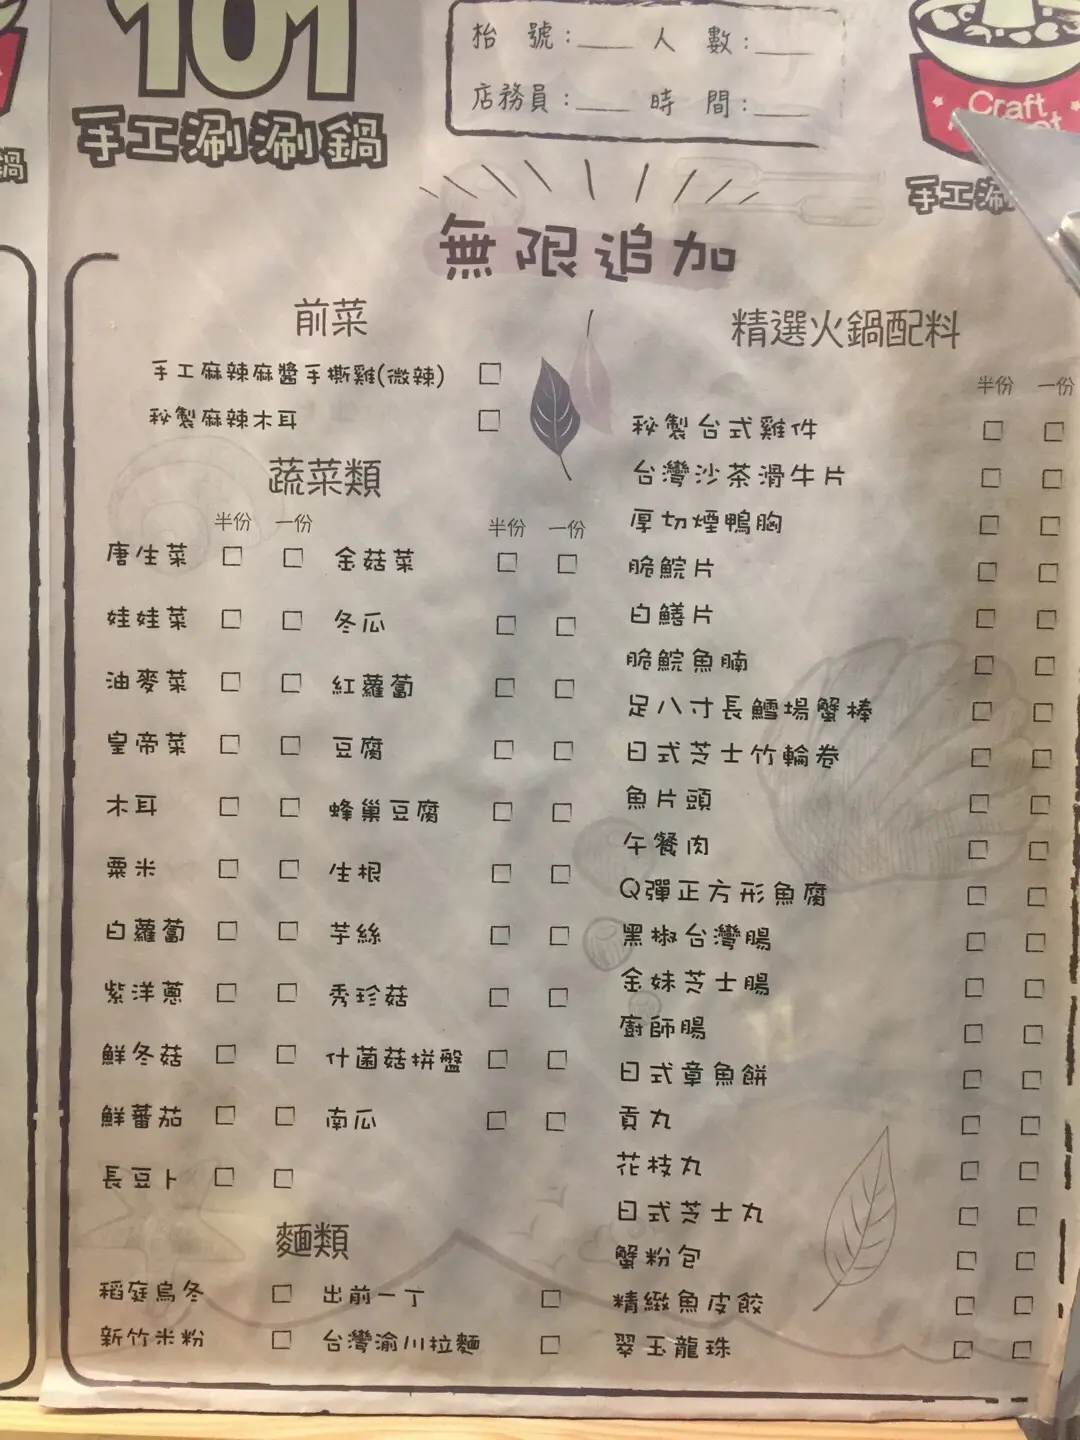 101
手工涮涮鍋
枱 號：___ 人 數：___
店務員：___ 時 間：___
Craft
手工涮
鍋
無限追加
前菜
手工麻辣麻醬手撕雞(微辣) □
秘製麻辣木耳 □
蔬菜類
半份 一份 半份 一份
唐生菜 □ □ 金菇菜 □ □
娃娃菜 □ □ 冬瓜 □ □
油麥菜 □ □ 紅蘿蔔 □ □
皇帝菜 □ □ 豆腐 □ □
木耳 □ □ 蜂巢豆腐 □ □
粟米 □ □ 生根 □ □
白蘿蔔 □ □ 芋絲 □ □
紫洋蔥 □ □ 秀珍菇 □ □
鮮冬菇 □ □ 什菌菇拼盤 □ □
鮮蕃茄 □ □ 南瓜 □ □
長豆卜 □ □
麵類
稻庭烏冬 □ 出前一丁 □
新竹米粉 □ 台灣渝川拉麵 □
精選火鍋配料
半份 一份
秘製台式雞件 □ □
台灣沙茶滑牛片 □ □
厚切煙鴨胸 □ □
脆鯇片 □ □
白鱔片 □ □
脆鯇魚腩 □ □
足八寸長鱈場蟹棒 □ □
日式芝士竹輪卷 □ □
魚片頭 □ □
午餐肉 □ □
Q彈正方形魚腐 □ □
黑椒台灣腸 □ □
金妹芝士腸 □ □
廚師腸 □ □
日式章魚餅 □ □
貢丸 □ □
花枝丸 □ □
日式芝士丸 □ □
蟹粉包 □ □
精緻魚皮餃 □ □
翠玉龍珠 □ □